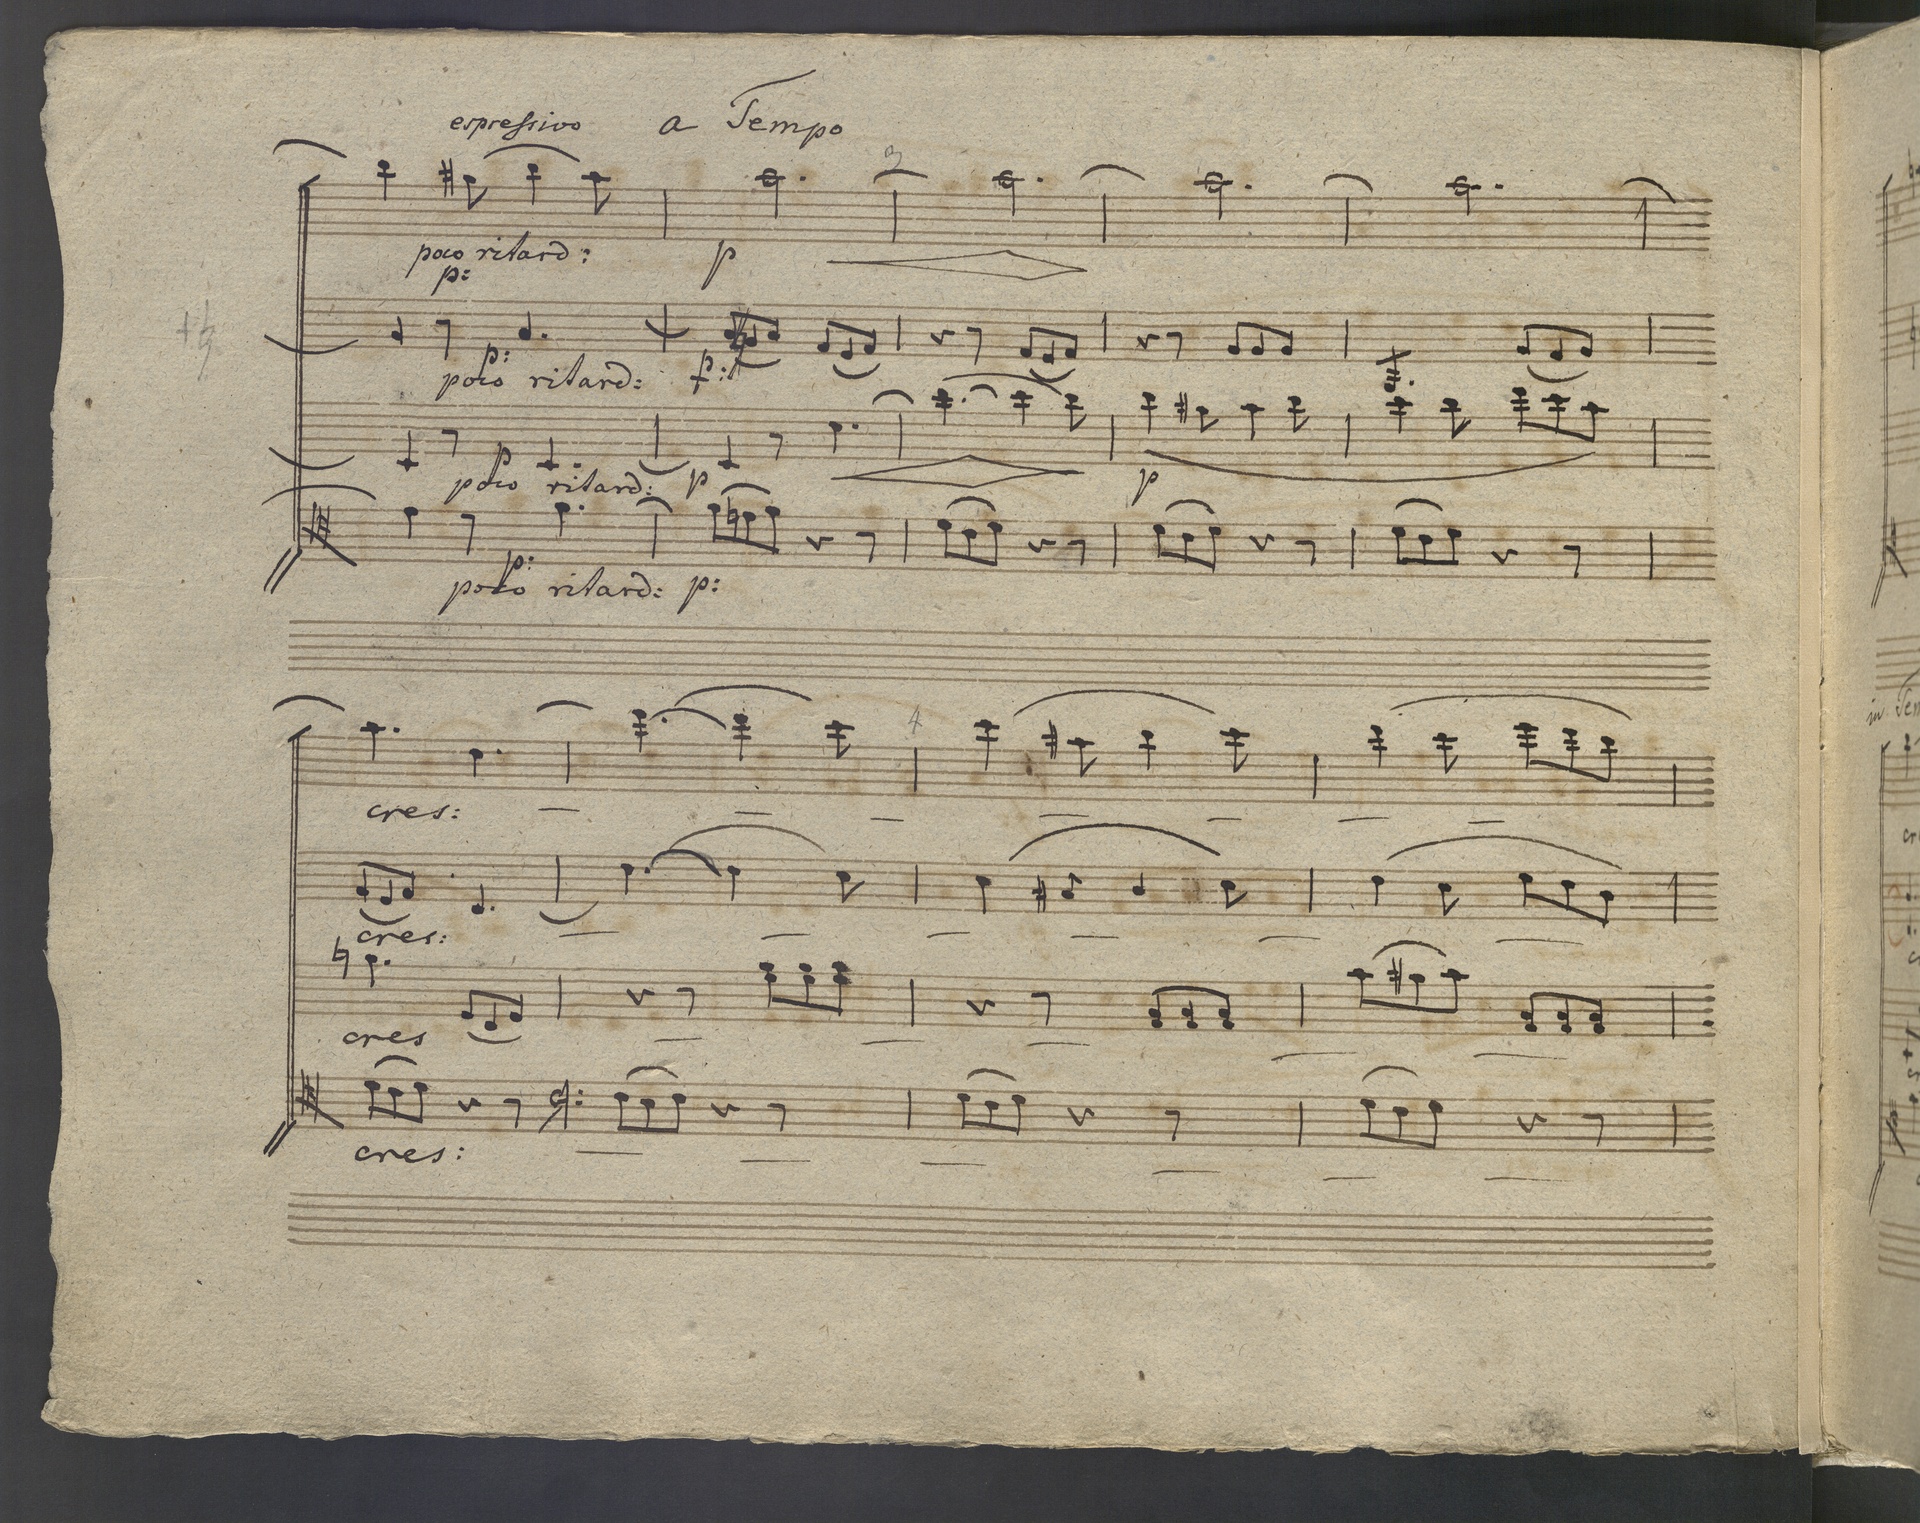 espressivo a Tempo
3
poco ritard: p
p:
p:
poco ritard: p:
p
poco ritard: p p
p:
poco ritard: p:
4
cres:
cres:
cres
cres: